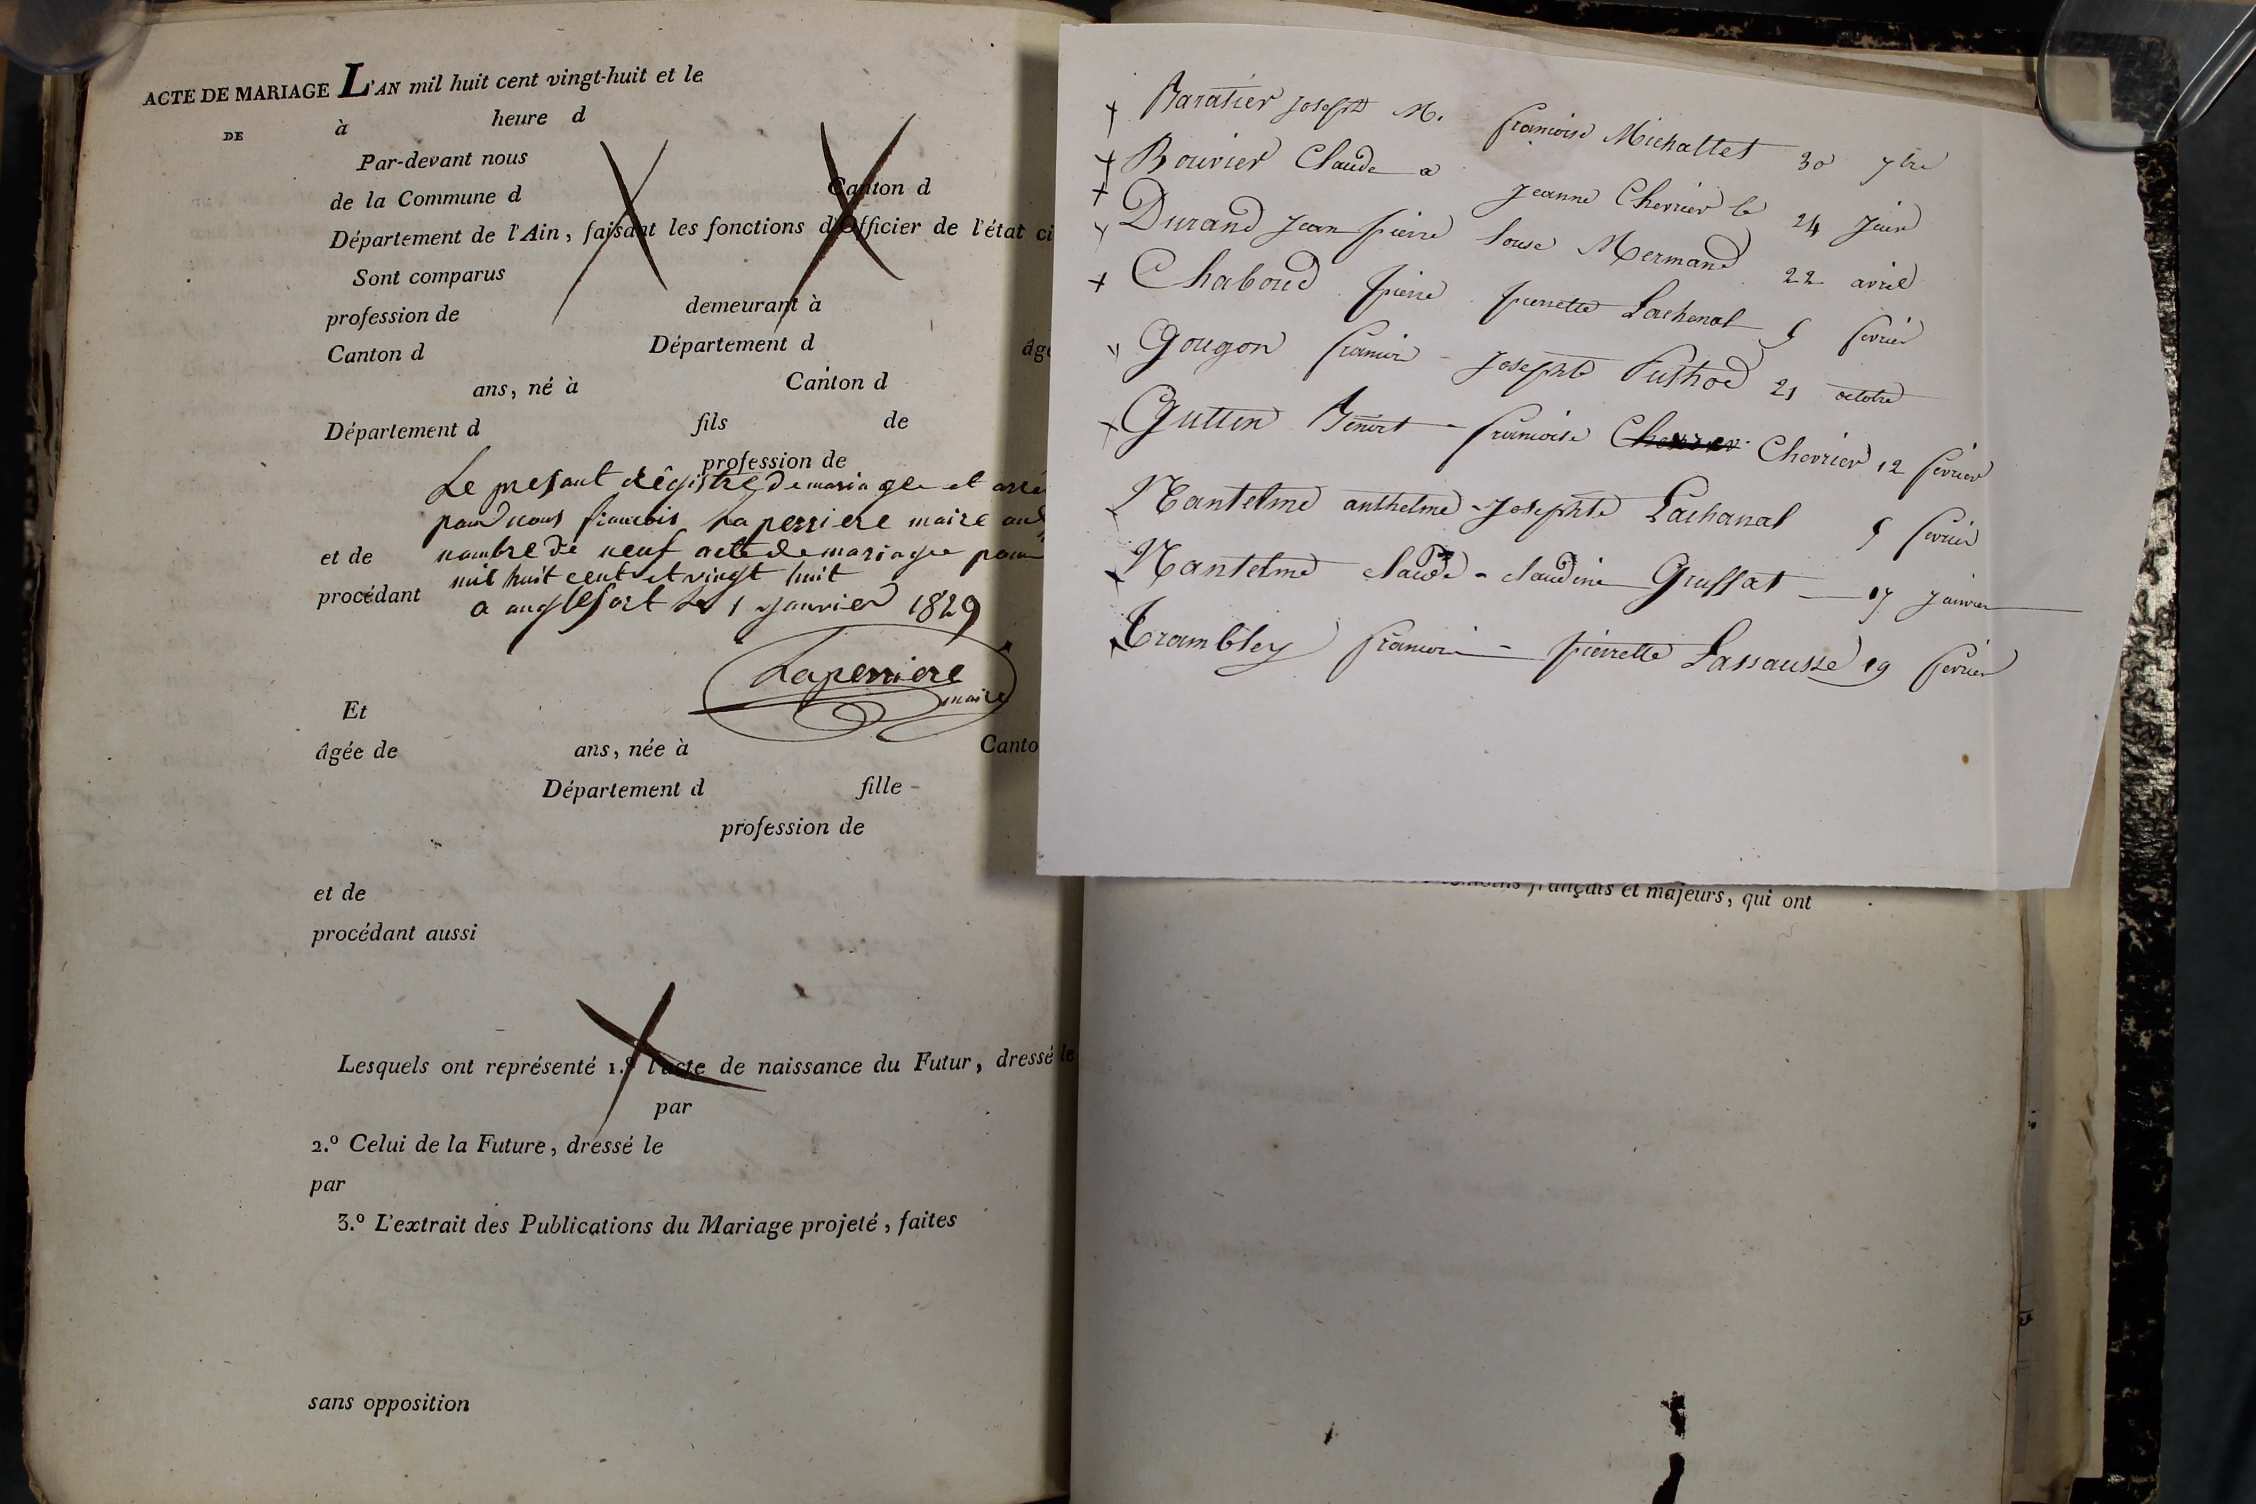 ACTE DE MARIAGE L'AN mil huit cent vingt-huit et le
DE à heure d
Par-devant nous
de la Commune d Canton d
Département de l'Ain, faisant les fonctions d'Officier de l'état ci
Sont comparus
profession de demeurant à
Canton d Département d âgé
ans, né à Canton d
Département d fils de
profession de
Le presant régistre de mariage et arré
par nous francois Laperriere maire au
et de nombre de neuf acte de mariage pour
procédant mil huit cent et vingt huit
a anglefort le 1 janvier 1829
Laperriere
maire
Et
âgée de ans, née à Canto
Département d fille
profession de
et de
procédant aussi
Lesquels ont représenté 1.º l'acte de naissance du Futur, dressé le
par
2.º Celui de la Future, dressé le
par
3.º L'extrait des Publications du Mariage projeté, faites
sans opposition
+ Baratier joseph M. francoise Michallet 30 7bre
+ Bouvier Claude a jeanne Chevrier le 24 juin
+ Durand jean pierre louse Mermand 22 avril
+ Chaboud pierre pierrette Lachenal 5 fevrier
Gougon francois - josephte Puthod 21 octobre
+ Guttin Benoit - francoise Chevrier Chevrier 12 fevrier
Nantelme anthelme - josephte Lachanal 5 fevrier
Nantelme claude - claudine Gruffat - 17 janvier
Trambley francois - pierrette Lassausse 19 fevrier
français et majeurs, qui ont